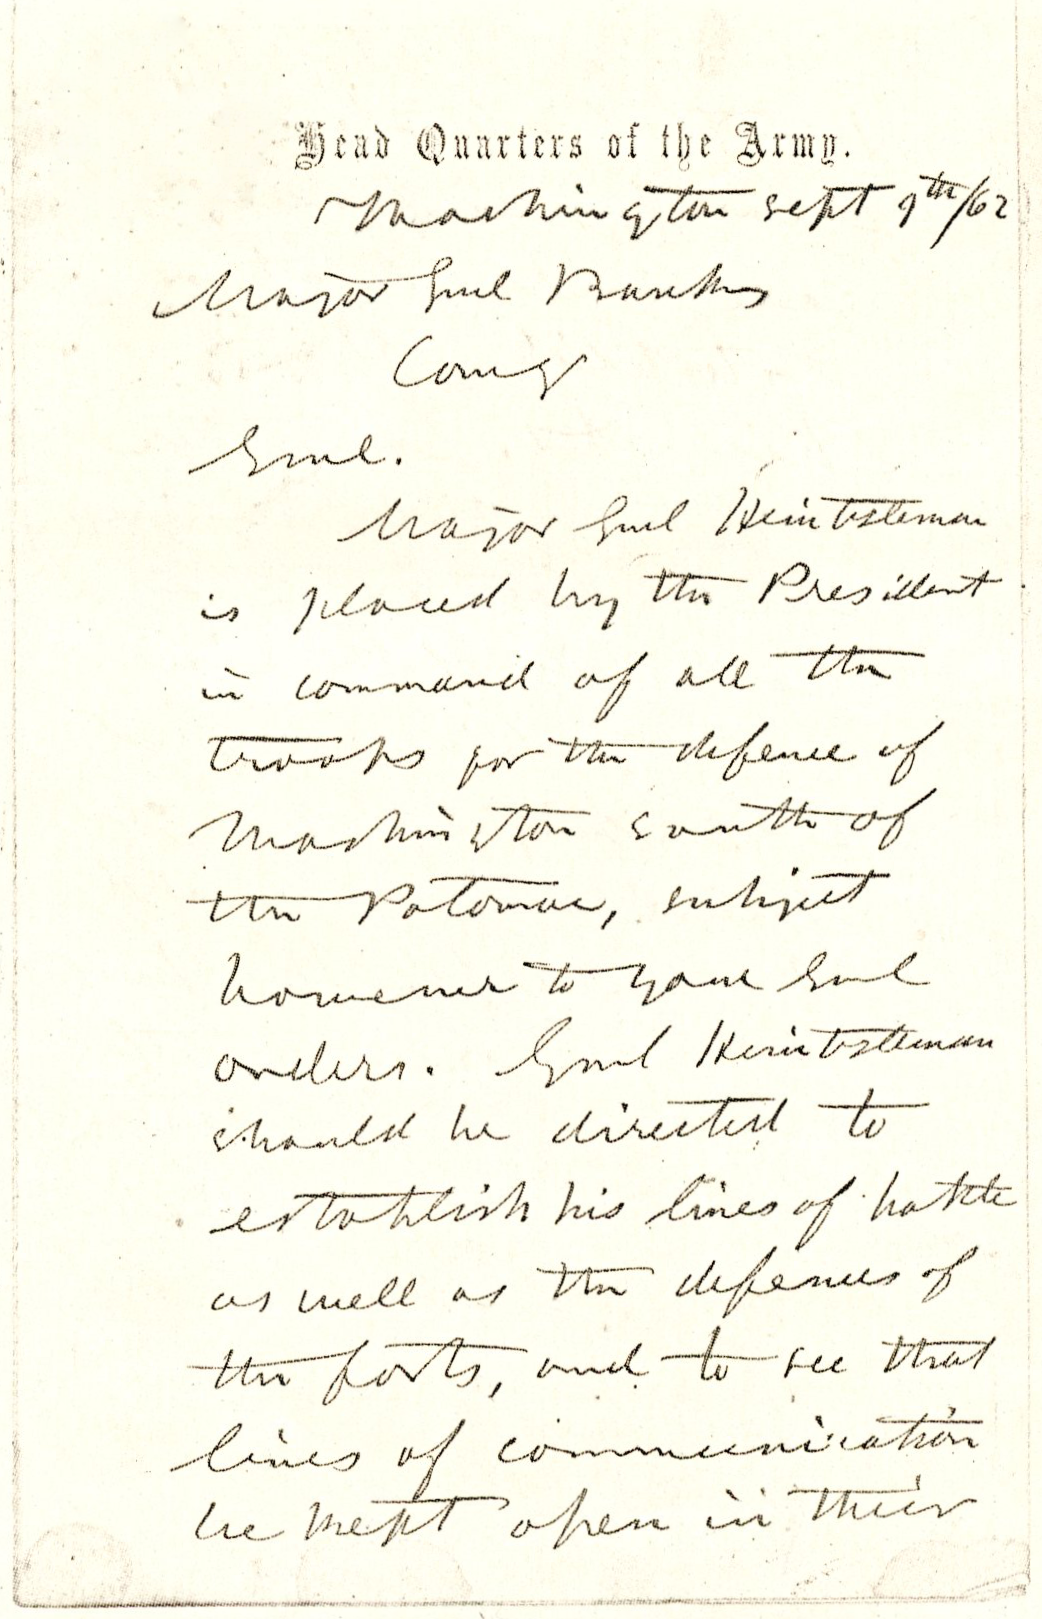 Head Quarters of the Army.
Washington Sept 9th/62
Major Genl Banks
Comg
Genl.
Major Genl Heintzleman
is placed by the President
in command of all the
troops for the defence of
Washington south of
the Potomac, subject
however to your Genl
orders. Genl Heintzleman
should be directed to
establish his lines of battle
as well as the defences of
the forts, and to see that
lines of communication
be kept open in their